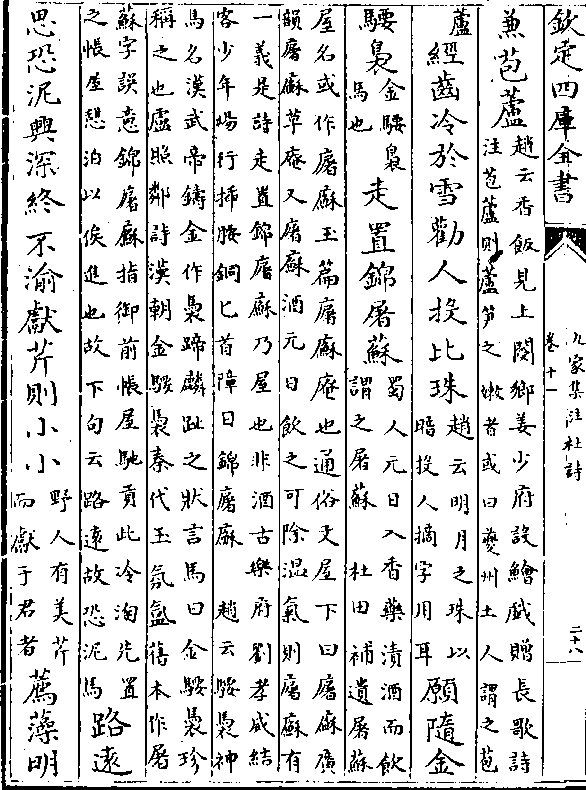 欽定四庫全書
兼苞蘆趙云香飯見上閿鄉姜少府設鱠戲贈長歌詩
注苞蘆則蘆笋之嫩者或曰夔州土人謂之苞
蘆經齒冷於雪勸人投比珠趙云明月之珠以
暗投人摘字用耳願隨金
騕褭金騕褭
馬也走置錦屠蘇蜀人元日入香藥漬酒而飲
謂之屠蘇 杜田補遺屠蘇
屋名或作廜㢝玉篇廜㢝庵也通俗文屋下曰廜㢝廣
韻廜㢝草庵又屠蘇酒元日飲之可除溫氣則廜㢝有
一義是詩走置錦廜㢝乃屋也非酒古樂府劉孝威結
客少年場行插腰銅匕首障日錦廜㢝 趙云騕褭神
馬名漢武帝鑄金作褭蹄麟趾之狀言馬曰金騕褭珍
稱之也盧照鄰詩漢朝金騕褭秦代玉氛氳舊本作屠
蘇字誤意錦廜㢝指御前帳屋馳貢此冷淘先置
之帳屋憩泊以俟進也故下句云路遠故恐泥馬路遠
思恐泥興深終不渝獻芹則小小野人有美芹
而獻于君者薦藻明
九家集注杜詩
卷十一
二十八